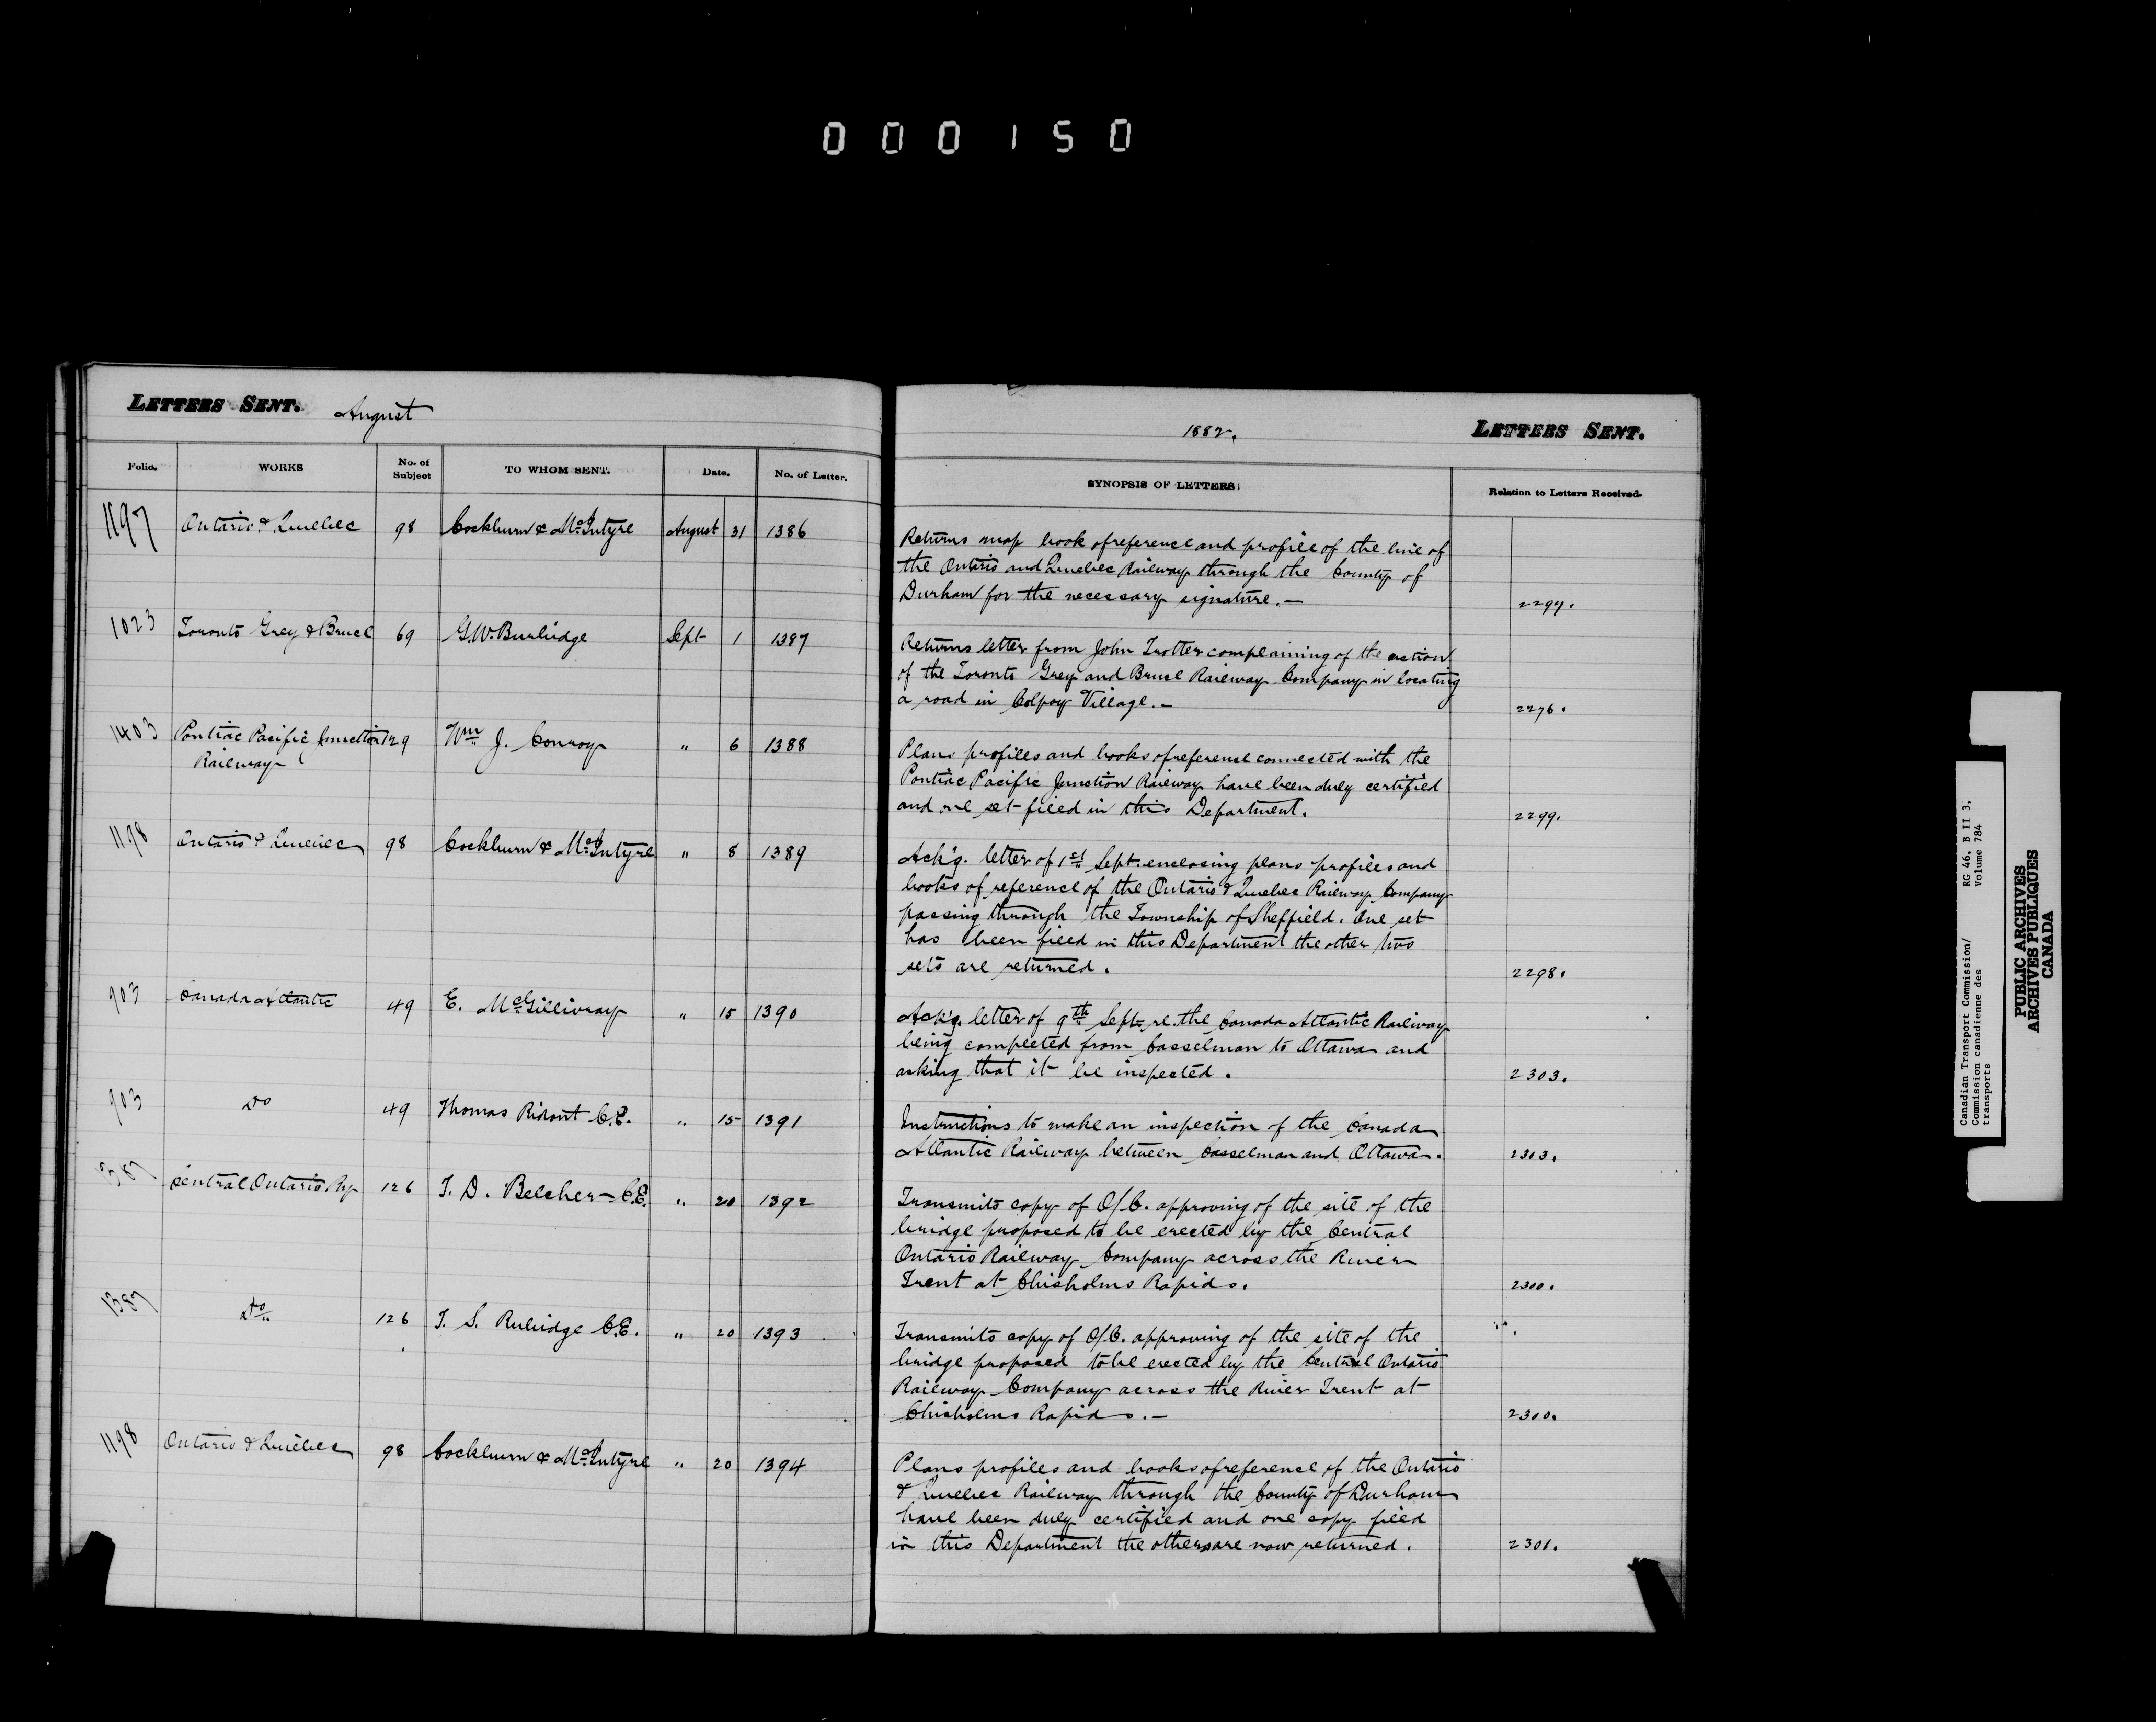 000150
LETTERS SENT. August
1882.
LETTERS SENT.
Folio. WORKS No. of Subject TO WHOM SENT. Date. No. of Letter. SYNOPSIS OF LETTERS. Relation to Letters Received.
1197 Ontario & Quebec 98 Cockburn & McIntyre August 31 1386
Returns map book of reference and profile of the line of
the Ontario and Quebec Railway through the County of
Durham for the necessary signature. — 2297.
1023 Toronto Grey & Bruce 69 G.W. Burbidge Sept 1 1387
Returns letter from John Trotter complaining of the action
of the Toronto Grey and Bruce Railway Company in locating
a road in Colpoy Village. — 2276.
1403 Pontiac Pacific Junction 129 Wm J. Conroy " 6 1388
Railway
Plans profiles and books of reference connected with the
Pontiac Pacific Junction Railway have been duly certified
and one set filed in this Department. 2299.
1198 Ontario & Quebec 98 Cockburn & McIntyre " 8 1389
Ack'g. letter of 1st Sept. enclosing plans profiles and
books of reference of the Ontario & Quebec Railway Company
passing through the Township of Sheffield. One set
has been filed in this Department the other two
sets are returned. 2298.
903 Canada Atlantic 49 E. McGillivray " 15 1390
Ack'g. letter of 9th Sept. re. the Canada Atlantic Railway
being completed from Casselman to Ottawa and
asking that it be inspected. 2303.
903 Do 49 Thomas Ridout C.E. " 15 1391
Instructions to make an inspection of the Canada
Atlantic Railway between Casselman and Ottawa. 2303.
1387 Central Ontario Ry 126 T. D. Belcher – C.E. " 20 1392
Transmits copy of O/C. approving of the site of the
bridge proposed to be erected by the Central
Ontario Railway Company across the River
Trent at Chisholms Rapids. 2300.
1387 Do 126 T. S. Rubidge C.E. " 20 1393
Transmits copy of O/C. approving of the site of the
bridge proposed to be erected by the Central Ontario
Railway Company across the River Trent at
Chisholms Rapids. — 2300.
1198 Ontario & Quebec 98 Cockburn & McIntyre " 20 1394
Plans profiles and books of reference of the Ontario
& Quebec Railway through the County of Durham
have been duly certified and one copy filed
in this Department the others are now returned. 2301.
Canadian Transport Commission/ RG 46, B II 3,
Commission canadienne des Volume 784
transports
PUBLIC ARCHIVES
ARCHIVES PUBLIQUES
CANADA